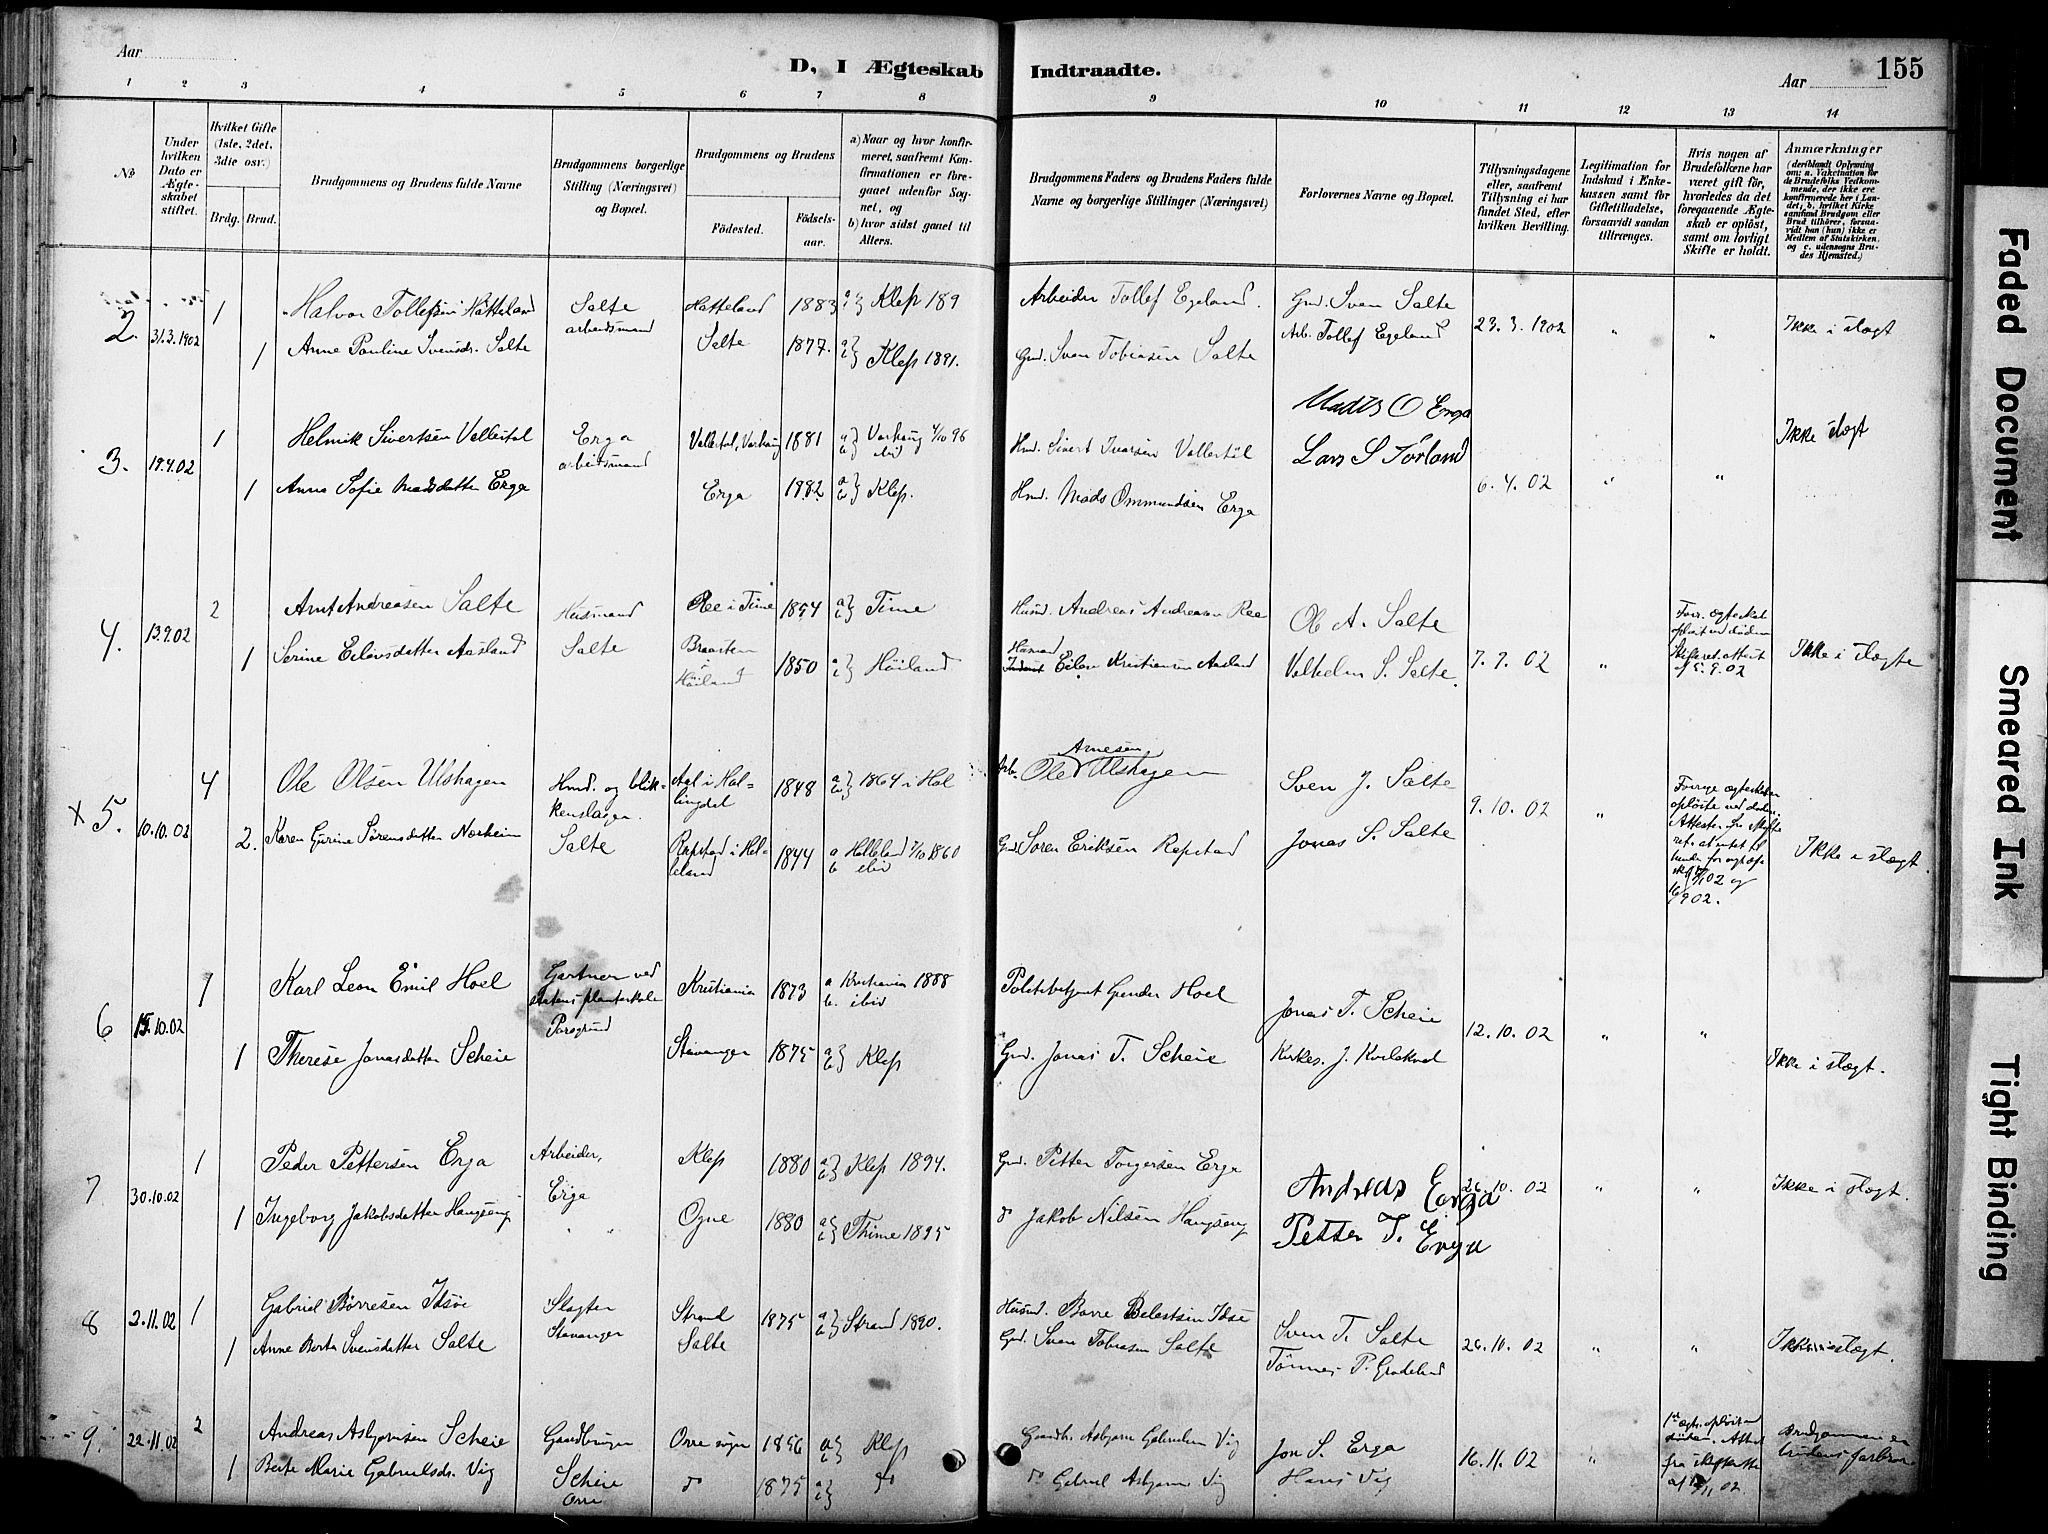 Aar
D, I Ægteskab Indtraadte.
Aar
155
1 2 3 4 5 6 7 8 9 10 11 12 13 14
No
Under hvilken Dato er Ægteskabet stiftet.
Hvilket Gifte (1ste, 2det, 3die osv.)
Brdg. Brud.
Brudgommens og Brudens fulde Navne
Brudgommens borgerlige Stilling (Næringsvei) og Bopæl.
Brudgommens og Brudens
Fødested. Fødselsaar.
a) Naar og hvor konfirmeret, saafremt Konfirmationen er foregaaet udenfor Sognet, og
b) hvor sidst ganet til Alters.
Brudgommens Faders og Brudens Faders fulde Navne og borgerlige Stillinger (Næringsvei)
Forlovernes Navne og Bopæl.
Tillysningsdagene eller, saafremt Tillysning ei har fundet Sted, efter hvilken Bevilling.
Legitimation for Indskud i Enkekassen samt for Giftetilladelse, forsaavidt saadan tiltrænges.
Hvis nogen af Brudefolkene har været gift før, hvorledes da det foregaaende Ægteskab er opløst, samt om lovligt Skifte er holdt.
Anmærkninger
(deriblandt Oplysning om: a. Vakcination for de Brudefolks Vedkommende, der ikke ere konfirmerede her i Landet, b. hvilket Kirkesamfund Brudgom eller Brud tilhører, forsaavidt han (hun) ikke er Medlem af Statskirken, og c. udensogns Brudes Hjemsted.)
2. 31.3.1902 1 Halvor Tollefsen Hatteland Salte arbeidsmand Hatteland 1883 a b} Klep 189 Arbeider Tollef Egeland. Gmd. Sven Salte 23.3.1902 " " Ikke i slægt
1 Anne Pauline Svensdr. Salte Salte 1877. Klep 1891. Gmd. Sven Tobiasen Salte Arb. Tollef Egeland
3. 19.4.02 1 Helmik Sivertsen Vallestøl Erga arbeidsmand Varhaug 1881 Varhaug 4/10 96 ibid Hmd. Sivert Ivarsen Mads O Erga 6.4.02 " " Ikke slægt
1 Anna Sofie Madsdatter Erga Erga 1882 Klep. Hmd. Mads Ommundsen Erga Lars S Tørland
4. 13.9.02 2 Arnt Andreasen Salte Husmand Ree i Time 1854 Time Husmd. Andreas Andreasen Ree Ole A. Salte 7.9.02 " Forr. ægteskab opløst ved døden Skifteret attest af 5.9.02 Ikke i slægt
1 Serine Eilevsdatter Aasland Salte Høiland 1850 Høiland Husmd Kristiansen Aasland S. Salte.
x 5. 10.10.02 4 Ole Olsen Ulshagen Hmd. og blikkenslager Aal i Hallingdal 1848 1864 i Hol Arb. Ole Arnesen Ulshagen Sven J. Salte 9.10.02 " Forrige ægteskaber opløste ved døden. Ikke i slægt.
2. Karen Gurine Sørensdatter Norheim Salte Repstad i Helleland 1844 a b Helleland 7/10 1860 ibid Gmd. Søren Eriksen Repstad Jonas S. Salte
6 15.10.02 1 Karl Leon Emil Hoel Gartner ved statens planteskole Porsgrund Kristiania 1873 a b. Kristiania 1888 ibid Politibetjent Hoel Jonas T. Scheie 12.10.02 " " Ikke i slægt.
1 Therese Jonasdatter Scheie Stavanger 1875 Klep Gmd. Jonas T. Scheie Kirkes. J. Kvelstad
7 30.10.02 1 Peder Pettersen Erga Arbeider, Erga Klep 1880 Klep 1894. Gmd. Petter Torgersen Erga Andreas Eerga 26.10.02 " " Ikke i slægt.
1 Ingeborg Jakobsdatter " " Ogne 1880 Thime 1895 Jakob Nilsen Petter T. Erga
8 2.11.02 1 Gabriel Børresen Idsøe Slagter Stavanger Strand 1875 Strand 1890. Husmd. Børre Idsøe Sven T. Salte 26.10.02 " " Ikke i slægt.
1 Anne Berta Svensdatter Salte Salte Gmd. Sven Tobiasen Salte Tønnes P. Grødeland
9. 22.11.02 2 Andreas Asbjørnsen Scheie Gaardbruger Orre sogn 1856 Klep Gaardbr. Asbjørn Gabrielsen Vig Jon S. Erga 16.11.02 " 1st ægt. opløst ved døden. Attest fra skifteret Brudgommen er brudens farbror
1 Berte Marie Gabrielsdr. Vig Scheie Orre 1875 Gabriel Asbjørnsen Vig Hans Vig
Faded Document
Smeared Ink
Tight Binding